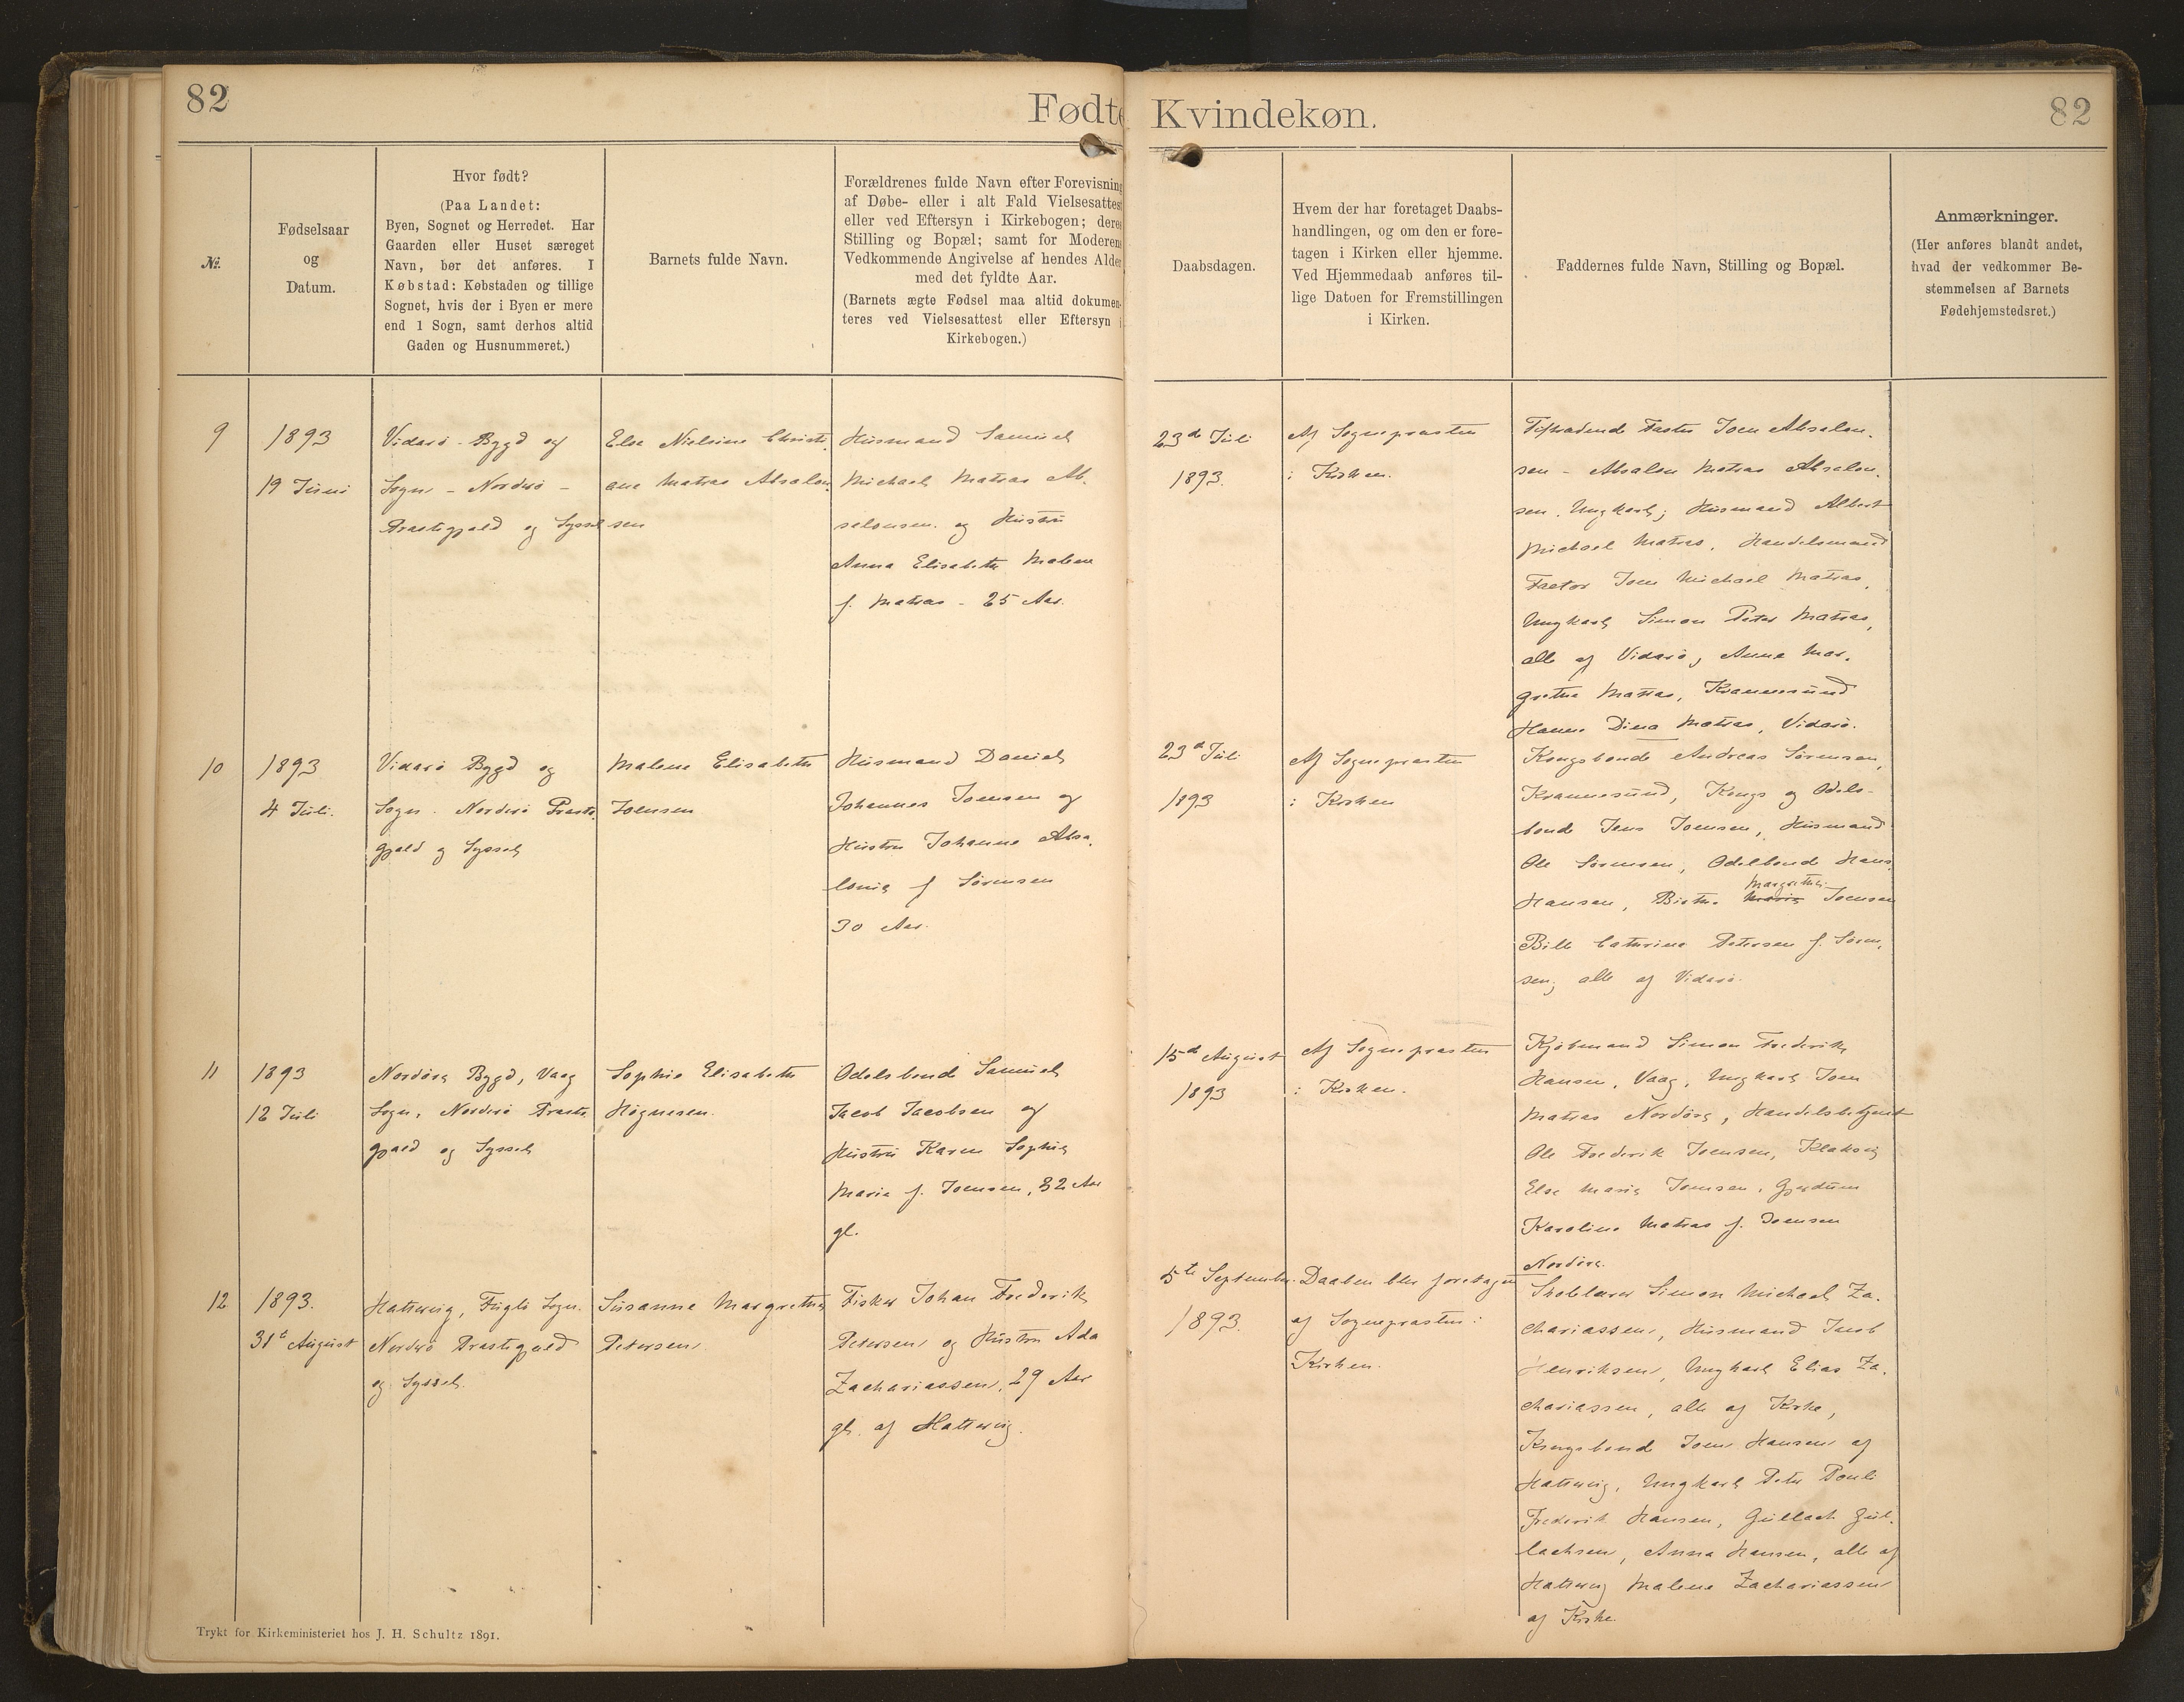 82
Fødte
Kvindekøn.
82
№.
Fødselsaar
og
Datum.
Hvor født?
(Paa Landet:
Byen, Sognet og Herredet. Har
Gaarden eller Huset særeget
Navn, bør det anføres. I
Købstad: Købstaden og tillige
Sognet, hvis der i Byen er mere
end 1 Sogn, samt derhos altid
Gaden og Husnummeret.)
Barnets fulde Navn.
Forældrenes fulde Navn efter Forevisning
af Døbe- eller i alt Fald Vielsesattest
eller ved Eftersyn i Kirkebogen; deres
Stilling og Bopæl; samt for Moderens
Vedkommende Angivelse af hendes Alder
med det fyldte Aar.
(Barnets ægte Fødsel maa altid dokumen-
teres ved Vielsesattest eller Eftersyn i
Kirkebogen.)
Daabsdagen.
Hvem der har foretaget Daabs-
handlingen, og om den er fore-
tagen i Kirken eller hjemme.
Ved Hjemmedaab anføres til-
lige Datoen for Fremstillingen
i Kirken.
Faddernes fulde Navn, Stilling og Bopæl.
Anmærkninger.
(Her anføres blandt andet,
hvad der vedkommer Be-
stemmelsen af Barnets
Fødehjemstedsret.)
9
1893
19 Juni
Vidarø - Bygd og
Sogn - Norderø -
Præstegjæld og Syssel
Else Nielsine Christi-
ane Matras Absalon-
sen
Husmand Samuel
Michael Matras Ab-
salonsen og Hustru
Anna Elisabeth Malene
f. Matras - 25 Aar.
23d Juli
1893.
Af Sognepræsten
i Kirken.
Faster Joen Absalon-
sen - Absalon Matras Absalon-
sen, Ungkarl; Husmand Albert
Michael Matras, Handelsmand
Factor Joen Michael Matras,
Ungkarl Simon Peter Matras,
alle af Vidarø, Anne Mar-
grethe Matras, Kvannesund
Hanne Dina Matras, Vidarø.
10
1893
4 Juli.
Vidarø Bygd og
Sogn. Norderø Præste-
gjæld og Syssel
Malene Elisabeth
Joensen
Husmand Daniel
Johannes Joensen og
Hustru Johanne Absa-
lonia f Sørensen
30 Aar.
23d Juli
1893
Af Sognepræsten
i Kirken
Kongsbonde Andreas Sørensen,
Kvannesund, Kongs og Odels-
bonde Jens Joensen, Husmand
Ole Sørensen, Odelbonde Hans
Margrethe
Hansen, Maria Joensen
Bille Cathrina Petersen f. Søren-
sen; alle af Vidarø.
11
1893
12 Juli
Nordøre Bygd, Vaag
Sogn, Norderø Præste-
gjæld og Syssel
Sophie Elisabeth
Høgnesen.
Odelsbonde Samuel
Jacob Jacobsen og
Hustru Karen Sophie
Marie f. Joensen, 32 Aar
gl.
15d August
1893
Af Sognepræsten
i Kirken.
Kjøbmand Simon Frederik
Hansen, Vaag, Ungkarl Joen
Matras Nordøre, Handelsbetjent
Ole Frederik Joensen, Klaksvig
Else Marie Joensen, Gjerdum
Karoline Matras f. Joensen
Nordøre.
12
1893.
31t August
Hattervig, Fuglø Sogn.
Norderø Præstegjæld
og Syssel.
Susanne Margrethe
Petersen
Fisker Johan Frederik
Petersen og Hustru Ada
Zachariassen, 29 Aar
gl. af Hattervig.
5te September
1893.
Daaben blev foretagen
af Sognepræsten i
Kirken.
Skolelærer Simon Michael Za-
chariassen, Husmand Jacob
Henriksen, Ungkarl Elias Za-
chariassen, alle af Kirke,
Kongsbonde Joen Hansen af
Hattervig, Ungkarl Peter Pouli
Frederik Hansen, Gullach Gul-
lachsen, Anna Hansen, alle af
Hattervig Malene Zachariassen
af Kirke.
Trykt for Kirkeministeriet hos J. H. Schultz 1891.